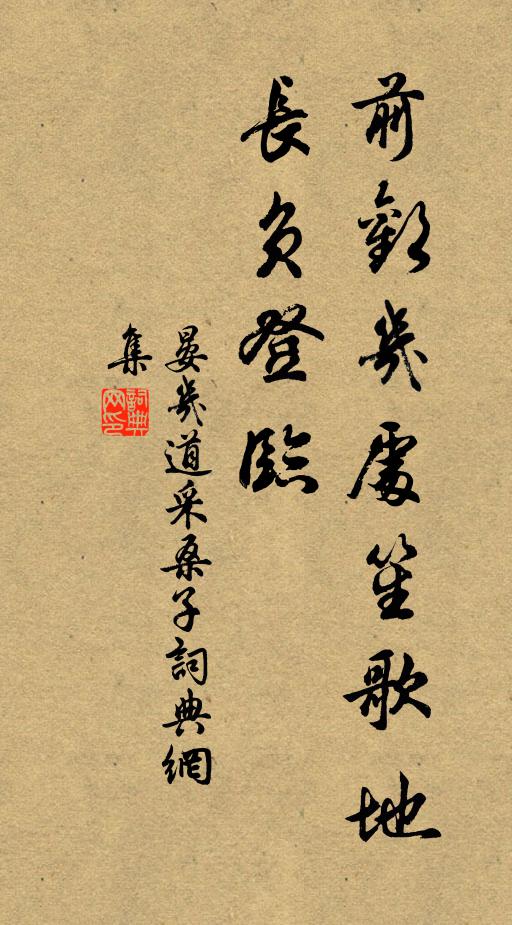 前歡幾處笙歌地
長負登臨
晏幾道采桑子詞典網
集
詞典網印